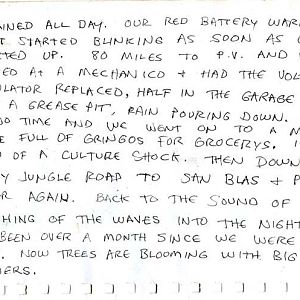 AINED ALL DAY. OUR RED BATTERY WARN
T STARTED BLINKING AS SOON AS
TED UP. 80 MILES TO P.V. AND
ED AT A MECHANICO & HAD THE VOL
ULATOR REPLACED, HALF IN THE GARAGE
A GREASE PIT, RAIN POURING DOWN.
TIME AND WE WENT ON TO A M
E FULL OF GRINGOS FOR GROCERYS. I
D OF A CULTURE SHOCK. THEN DOWN
Y JUNGLE ROAD TO SAN BLAS & P
R AGAIN. BACK TO THE SOUND OF
HING OF THE WAVES INTO THE NIGHT
BEEN OVER A MONTH SINCE WE WERE
. NOW TREES ARE BLOOMING WITH BIG
ERS.